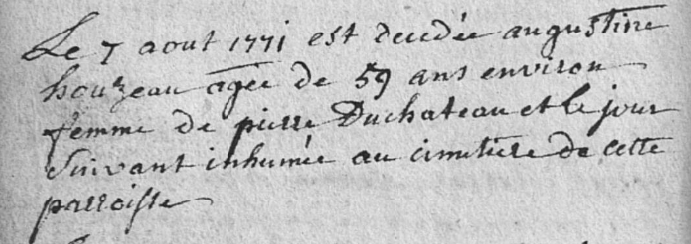 Le 7 aout 1771 est decedée augustine
houzeau agée de 59 ans environ
femme de pierre Duchateau et le jour
suivant inhumée au cimetiere de cette
parroisse